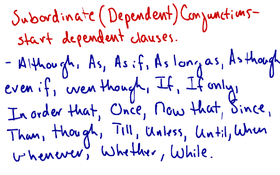 Subordinate (Dependent) Conjunctions-
start dependent clauses.
- Although, As, As if, As long as, As though
even if, even though, If, If only,
In order that, Once, Now that, Since,
Than, though, Till, Unless, Until, When
whenever, Whether, While.